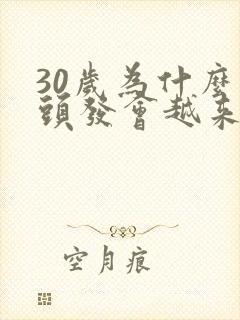 30歲為什麼
頭發會越来
空月痕